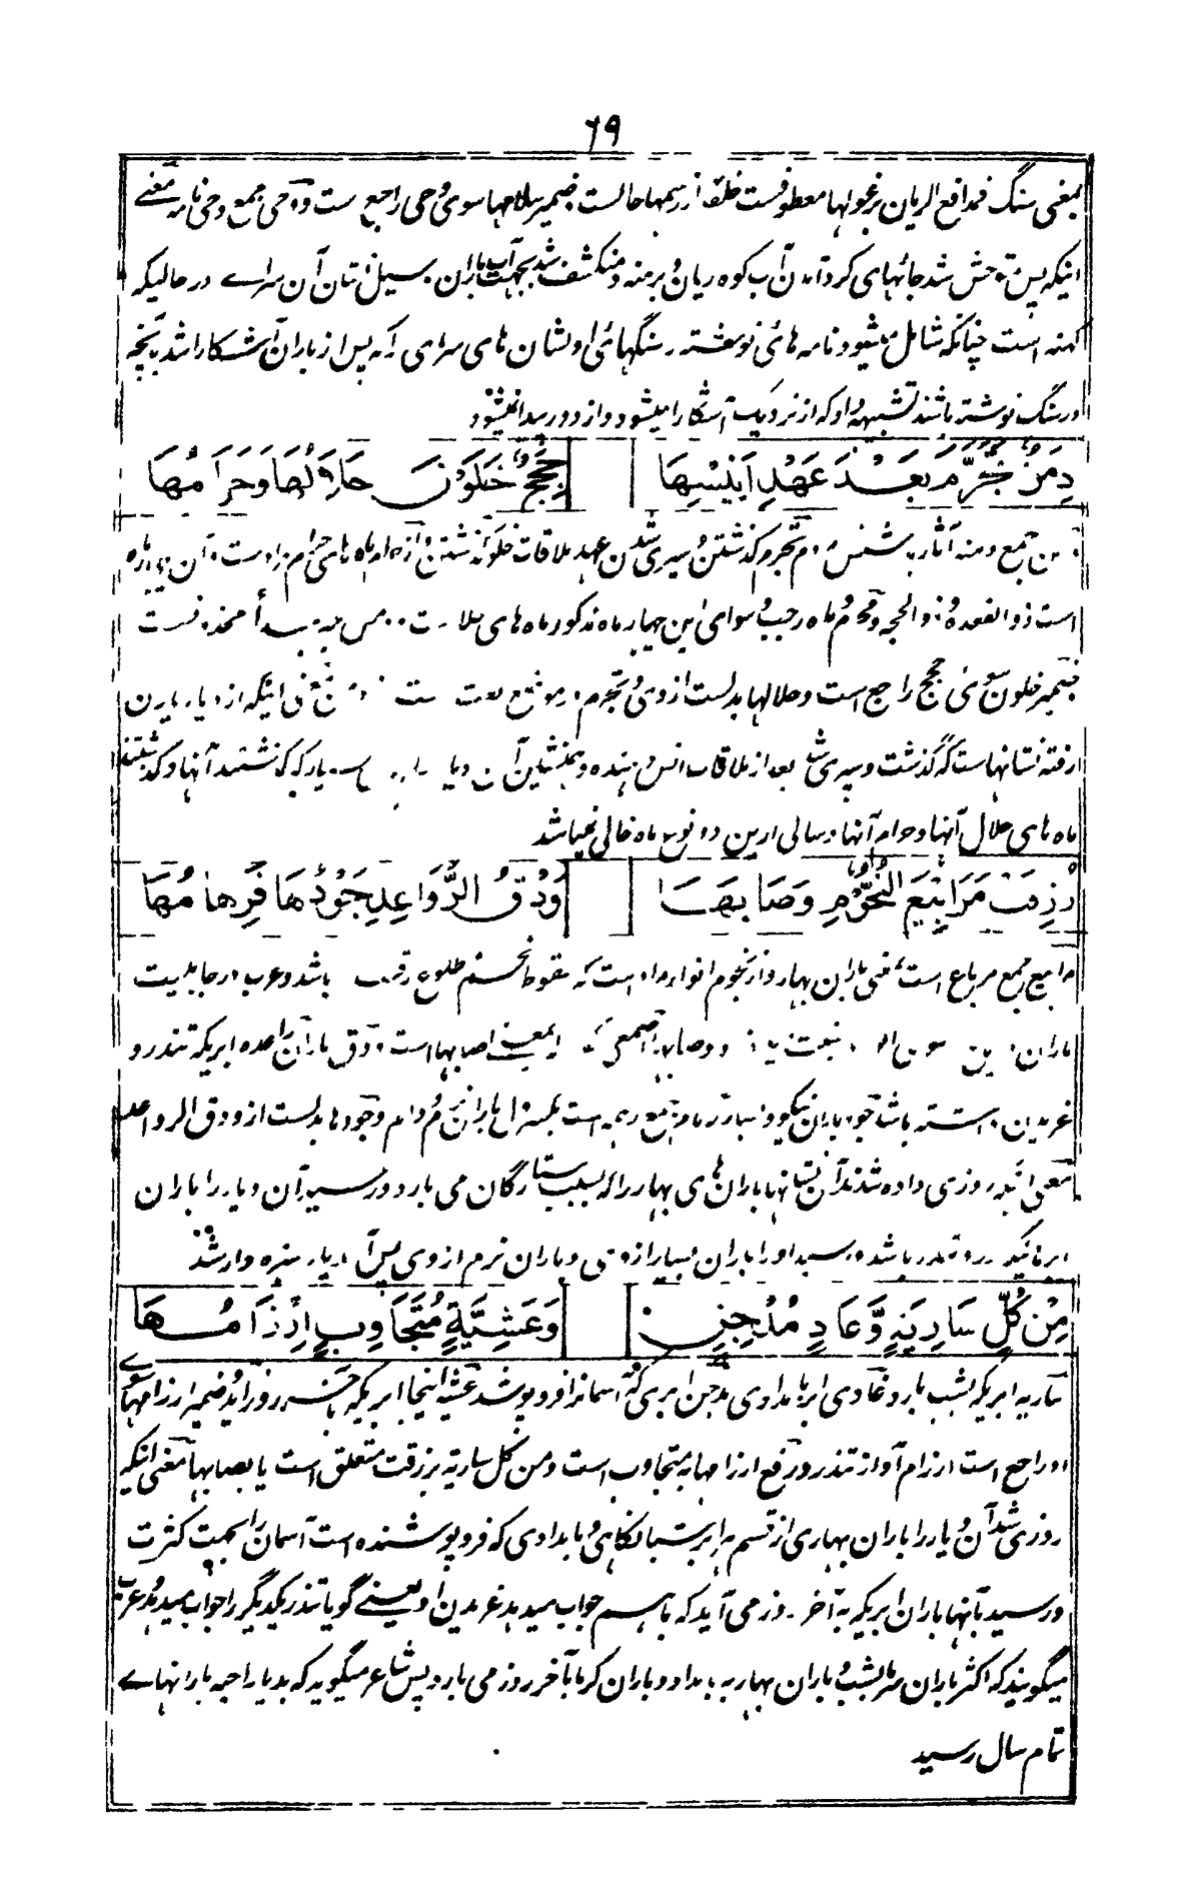 ٦٩
بمعنی سنگ فمدافع الریان بر غولها معطوفست خلقا از رسمها حالست ضمیر سلامها سوی وحی راجع ست وحی جمع وحی نامه معنے
اینکه پس متوحش شد جائهای کرد آمدن آب کوه ریان و برهنه و منکشف شد بجهت آب باران بسیل زتان آن سراے در حالیکه
کهنه است چنانکه شامل میشود نامه های نوشته سنگهائی او نشان های سرای که پس از باران آشکارا شد بآنچه
در سنگ نوشته باشند تشبیه داد که از نزدیک آشکارا میشود و از دور پیدا نمیشود
دِمَنٌ تَجَرَّمَ بَعْدَ عَهْدِ اَنِيْسِهَا حِجَجٌ خَلَوْنَ حَلَالُهَا وَحَرَامُهَا
دمن جمع دمنه آثار باشش مردم تجرم گذشتن و سپری شدن عهد ملاقات خلو گذشتن و از حرام ماه های حرام مراد ست و آن چهار ماه
است ذو القعده و ذو الحجه و محرم و ماه رجب و سوای این چهار ماه مذکور ماه های حلال ست دمن مبتدأ محذوفست
ضمیر خلون سوئی حجج راجع است و حلالها بدلست از وی و تجرم در موضع نعت ست معنی اینکه از دیار یارن
رفته نشانهاست که گذشت و سپری شد بعد از ملاقات انس دهنده و همنشین آن دیار که گذشتند آنها و گذشتند
ماه های حلال آنها و حرام آنها و سالی ازین دو نوع ماه خالی نمیباشد
رُزِقَتْ مَرَابِيْعَ النُّجُوْمِ وَصَابَهَا وَدْقُ الرَّوَاعِدِ جَوْدُهَا فَرِهَامُهَا
مرابیع جمع مرباع است یعنی باران بهار و از نجوم انواء مراد است که سقوط نجم طلوع رقیب باشد و عرب در جاهلیت
باران نسبت و صابها اصمعی بمعنے اصابها است ودق باران راعده ابریکه تندر و
غریدن داشته باشد جود باران نیکو و بسیار رهام جمع رهمه است بمنزله باران نرم و دایم و جودها بدلست از ودق الرواعد
معنی اینکه روزی داده شدند آن نشانها باران های بهار را که بسبب ستارگان می بارد و رسید آن دیار را باران
ابرهائیکه تندر باشد و رسید او را باران بسیار از وی و باران نرم از وی پس آن دیار سبزه دار شد
مِنْ كُلِّ سَارِيَةٍ وَّغَادٍ مُدْجِنٍ وَعَشِيَّةٍ مُتَجَاوِبٍ اِرْزَامُهَا
ساریه ابریکه بشب بارد غادی ابر بامدادی مدجن ابری که آسمانرا فرو پوشد عشیه اینجا ابریکه بآخر روز آید ضمیر ارزامها سوی
او راجع است ارزام آواز تندر و رفع ارزامها به متجاوب است و من کل ساریه بر رزقت متعلق است یا بصابها معنی اینکه
روزی شد آن دیار را باران بهاری از قسم هر ابر شبانگاهی و بامدادی که فرو پوشنده است آسمان را بجهت کثرت
و رسید بآنها باران ابریکه به آخر روز می آید که باهم جواب میدهد غریدن او یعنے گویا تندر یکدیگر را جواب میدهد عرب
میگویند که اکثر باران سرما بشب و باران بهار به بامداد و باران گرما بآخر روز می بارد پس شاعر میگوید که بدیار احبه بارانهاے
تمام سال رسید